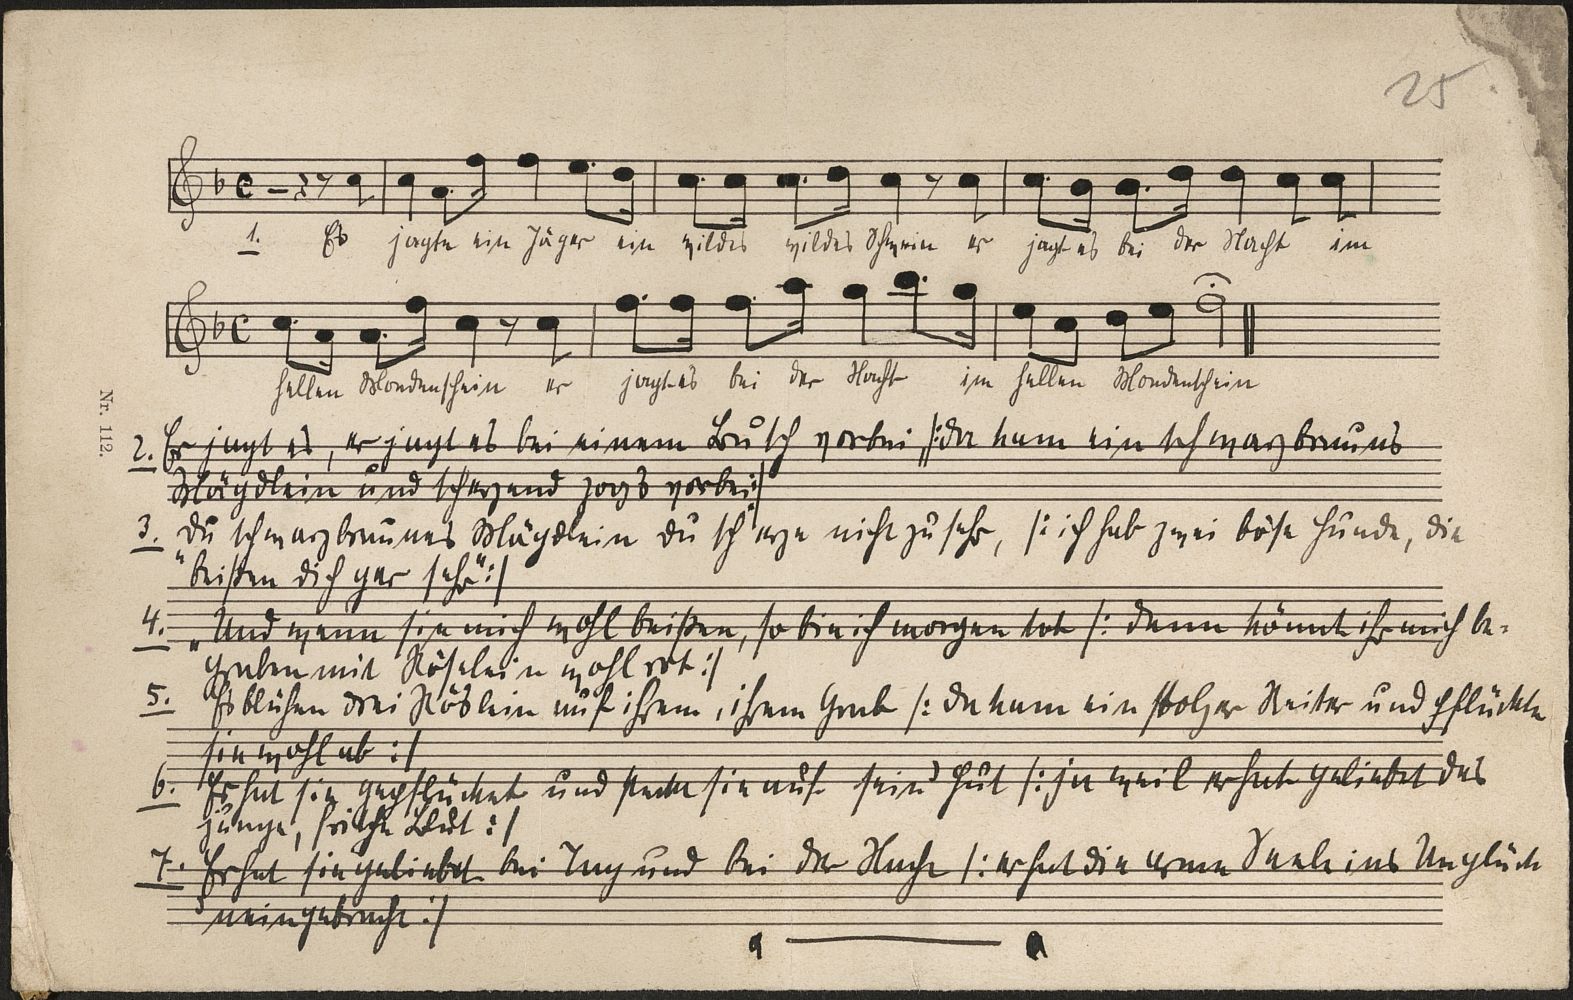 25
1. Es jagte ein Jäger ein wildes wildes Schwein er jagt es bei der Nacht im
hellen Mondenschein er jagt es bei der Nacht im hellen Mondenschein
Nr. 112.
2. Er jagt es, er jagt es bei einem Busch vorbei /: da kam ein schwarzbrauns
Mägdlein und scherzend zogs vorbei :/
3. „Du schwarzbraunes Mägdlein du scherze nicht zu sehr, /: ich hab zwei böse Hunde, die
beißen dich gar sehr" :/
4. „Und wenn sie mich wohl beißen, so bin ich morgen tot /: dann könnt ihr mich be-
graben mit Röselein wohl rot :/
5. Es blühen drei Röslein auf ihrem, ihrem Grab /: da kam ein stolzer Reiter und pflückte
sie wohl ab :/
6. Er hat sie gepflücket und steckt sie auf sein Hut /: ja weil er hat geliebet das
junge, frische Blut :/
7. Er hat sie geliebet bei Tag und bei der Nacht /: er hat die arme Seele ins Unglück
neingebracht :/